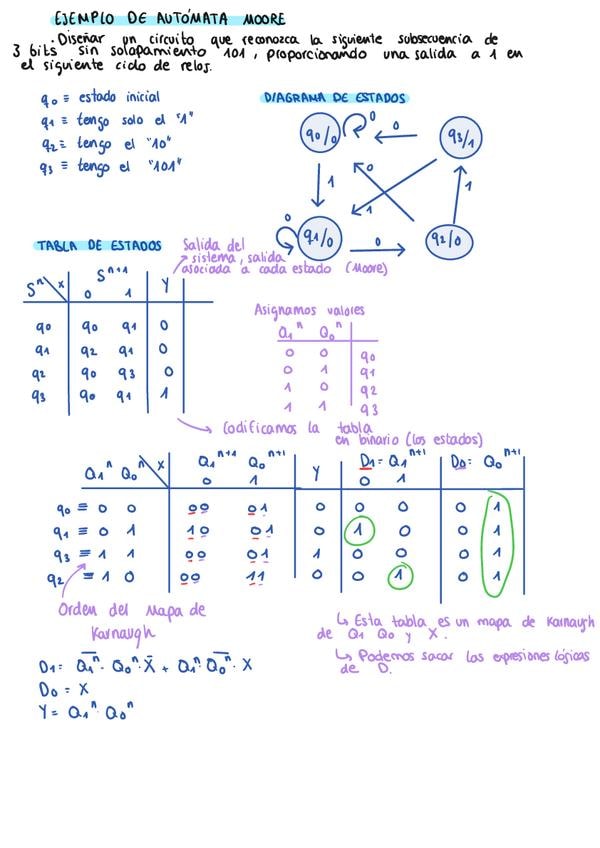 EJEMPLO DE AUTÓMATA MOORE
. Diseñar un circuito que reconozca la siguiente subsecuencia de
3 bits sin solapamiento 101, proporcionando una salida a 1 en
el siguiente ciclo de reloj.
q0 ≡ estado inicial
q1 ≡ tengo solo el "1"
q2 ≡ tengo el "10"
q3 ≡ tengo el "101"
DIAGRAMA DE ESTADOS
q0/0 0 0 q3/1
1 0 1 1
0 q1/0 0 q2/0
TABLA DE ESTADOS
Salida del
sistema, salida
asociada a cada estado (Moore)
S^n X S^n+1 Y
0 1
q0 q0 q1 0
q1 q2 q1 0
q2 q0 q3 0
q3 q0 q1 1
Asignamos valores
Q1^n Q0^n
0 0 q0
0 1 q1
1 0 q2
1 1 q3
Codificamos la tabla
en binario (los estados)
Q1^n Q0^n X Q1^n+1 Q0^n+1 Y D1 = Q1^n+1 D0 = Q0^n+1
0 1 0 1
q0 ≡ 0 0 00 01 0 0 0 0 1
q1 ≡ 0 1 10 01 0 1 0 0 1
q3 ≡ 1 1 00 01 1 0 0 0 1
q2 ≡ 1 0 00 11 0 0 1 0 1
Orden del mapa de
Karnaugh
↳ Esta tabla es un mapa de Karnaugh
de Q1 Q0 y X.
↳ Podemos sacar las expresiones lógicas
de D.
D1 = Q̅1^n · Q0^n · X̅ + Q1^n · Q̅0^n · X
D0 = X
Y = Q1^n · Q0^n